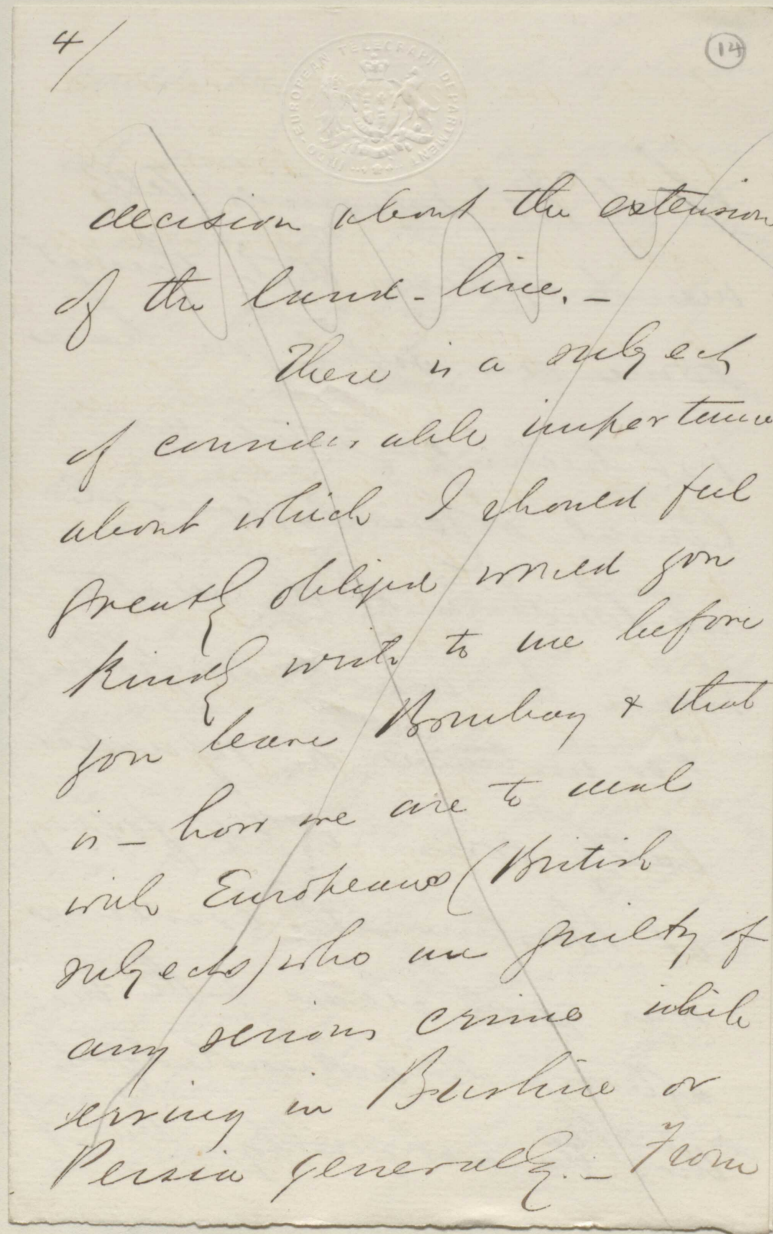 4/
14
INDO-EUROPEAN TELEGRAPH DEPARTMENT
decision about the extension
of the land-line. —
There is a subject
of considerable importance
about which I should feel
greatly obliged would you
kindly write to me before
you leave Bombay & that
is — how we are to deal
with Europeans (British
subjects) who are guilty of
any serious crime while
serving in Bushire or
Persia generally. — From